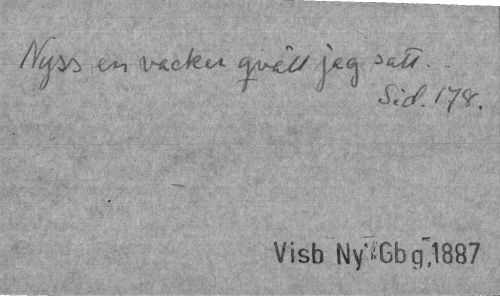 Nyss en vacker qväll jag satt. . .
Sid. 178.
Visb Ny Gbg, 1887